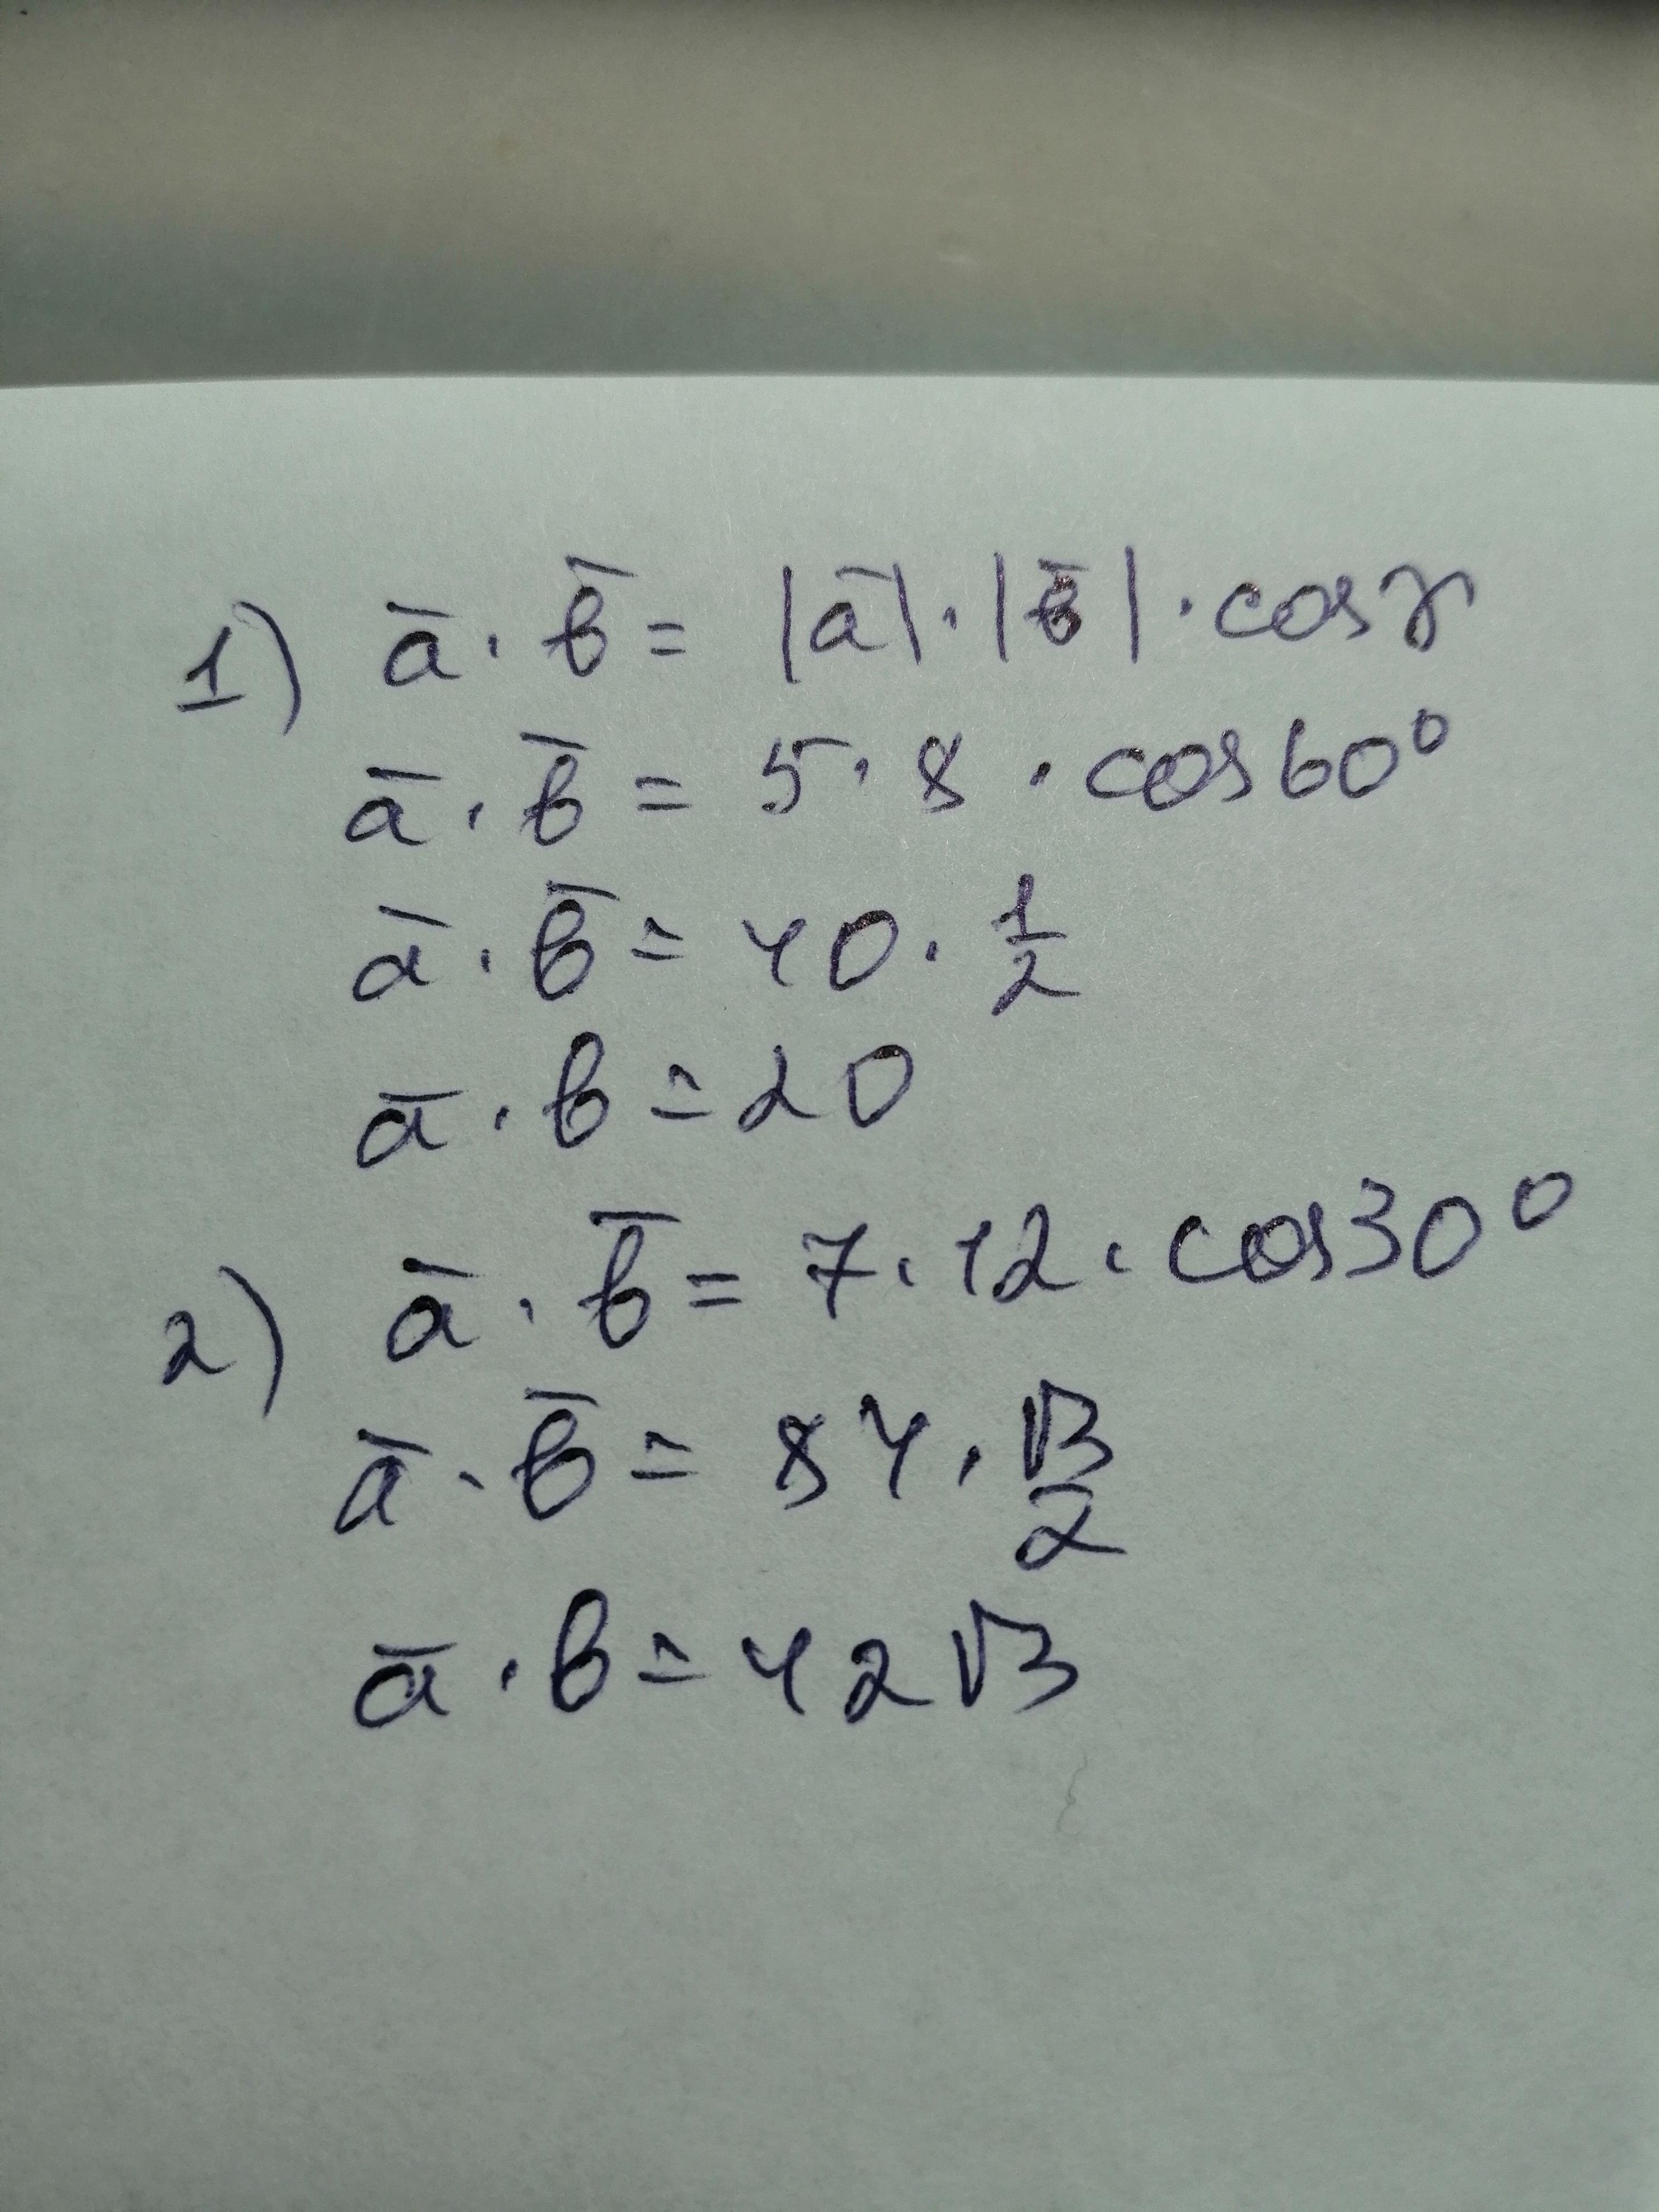 1) a̅ · b̅ = |a̅| · |b̅| · cos γ
a̅ · b̅ = 5 · 8 · cos 60°
a̅ · b̅ = 40 · 1/2
a̅ · b = 20
2) a̅ · b̅ = 7 · 12 · cos 30°
a̅ · b̅ = 84 · √3/2
a̅ · b = 42√3